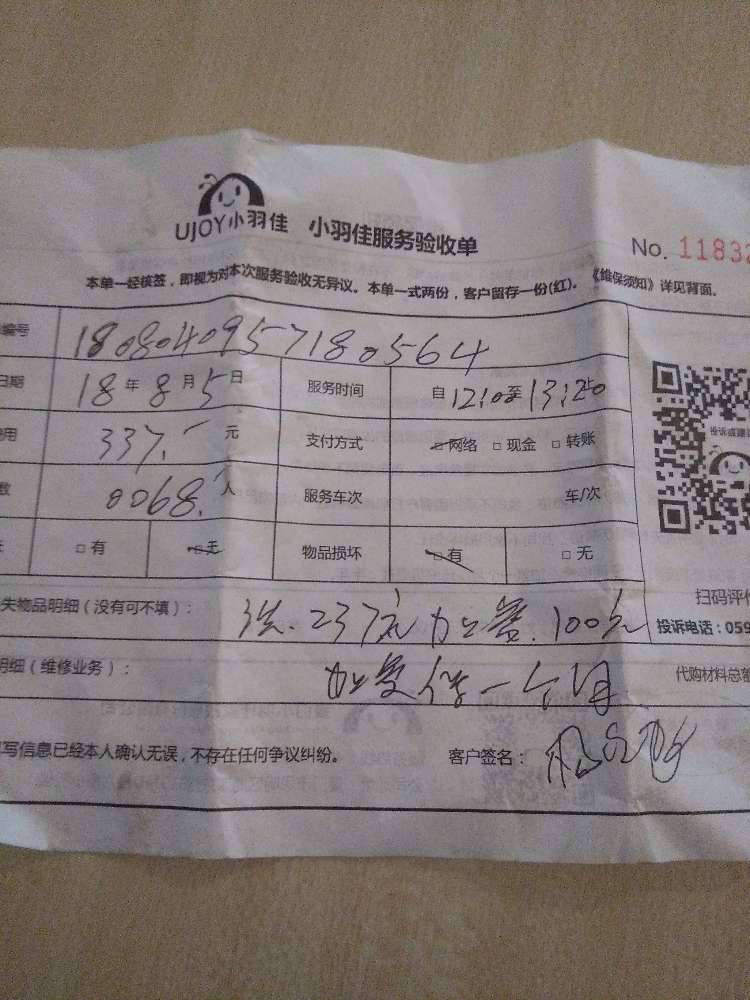 UJOY小羽佳 小羽佳服务验收单 No. 11832
本单一经核签，即视为对本次服务验收无异议。本单一式两份，客户留存一份(红)。《维保须知》详见背面。
编号 1808040957180564
日期 18年8月5日 服务时间 自12:00至13:20
用 337.元 支付方式 □网络 □现金 □转账
投诉或建议
数 0068.人 服务车次 车/次
□有 □无 物品损坏 □有 □无
扫码评价
失物品明细（没有可不填）： 洗.237元 加氟.100元 投诉电话：059
明细（维修业务）： 保一个月 代购材料总额
写信息已经本人确认无误，不存在任何争议纠纷。 客户签名：